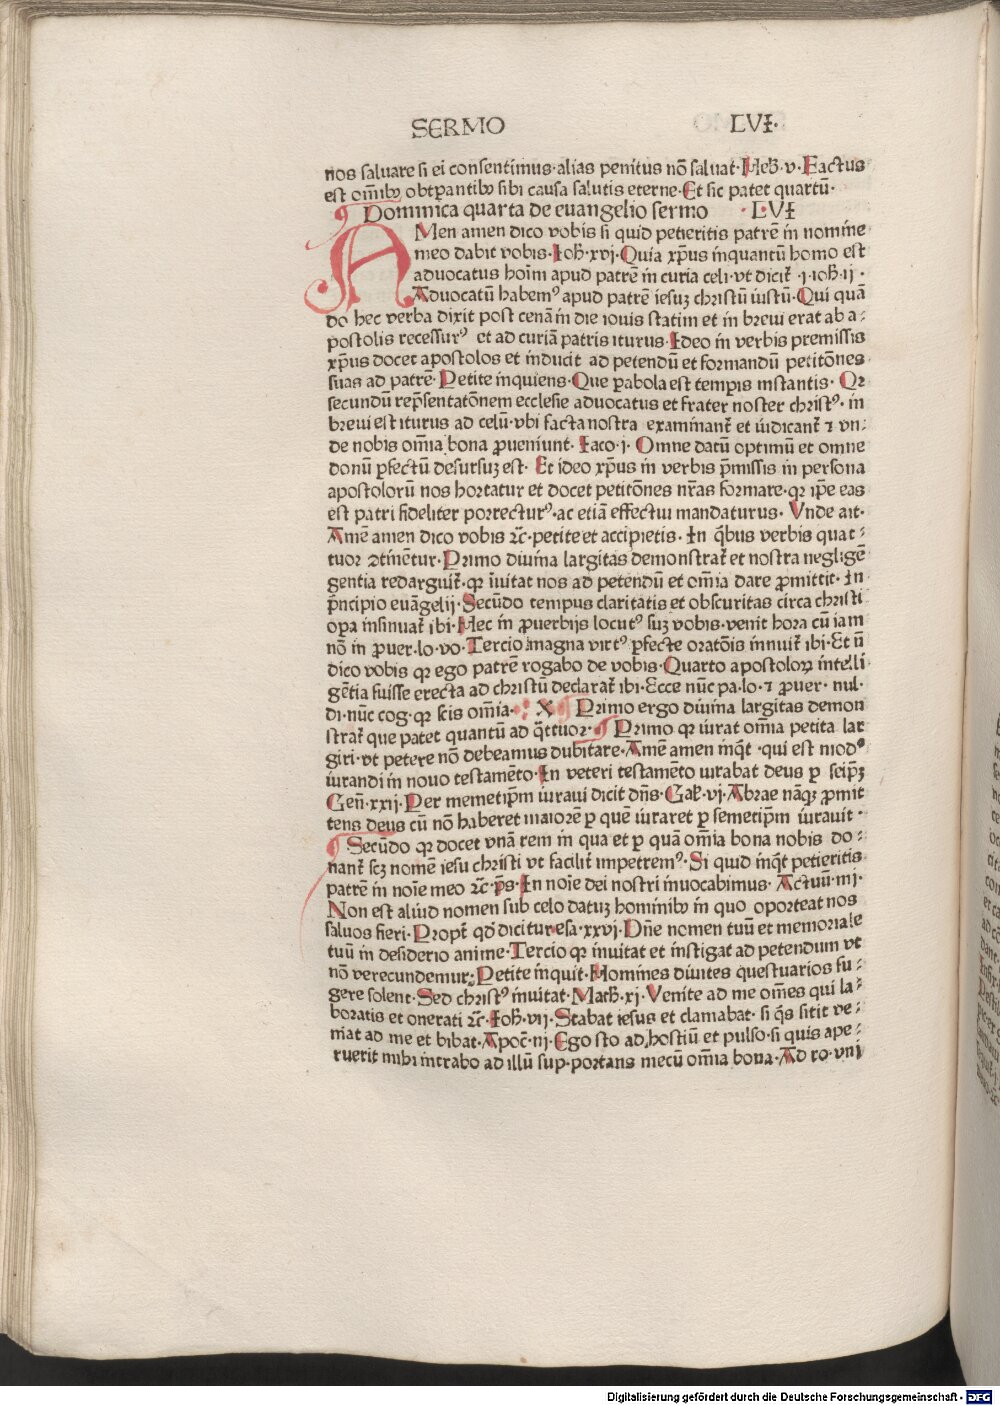 SERMO LVI.
nos saluare si ei consentimus·alias penitus nō saluat·Heb̄·v·Factus
est om̄ibꝫ obtꝑantibꝫ sibi causa salutis eterne·Et sic patet quartū·
Dominica quarta de euangelio sermo ·LVI
AMen amen dico vobis si quid petieritis patrē in nomine
meo dabit vobis·Ioh̄·xvj·Quia xp̄us inquantū homo est
aduocatus hoīm apud patrē in curia celi·vt dicit᷑·j·ioh̄·ij·
Aduocatū habemꝰ apud patrē iesuꝫ christū iustū·Qui quā
do hec verba dixit post cenā in die iouis statim et in breui erat ab a⸗
postolis recessurꝰ et ad curiā patris iturus·Ideo in verbis premissis
xp̄us docet apostolos et inducit ad petendū et formandū petitōnes
suas ad patrē·Petite inquiens·Que ꝑabola est tempꝭ instantis·Qꝛ
secundū rep̄sentatōnem ecclesie aduocatus et frater noster christꝰ·in
breui est iturus ad celū·vbi facta nostra examinant᷑ et iudicant᷑ ⁊ vn⸗
de nobis om̄ia bona ꝓueniunt·Iaco·i·Omne datū optimū et omne
donū ꝑfectū desursuꝫ est·Et ideo xp̄us in verbis p̄missis in persona
apostolorū nos hortatur et docet petitōnes nr̄as formare·qꝛ ip̄e eas
est patri fideliter porrecturꝰ·ac etiā effectui mandaturus·Vnde ait·
Amē amen dico vobis ⁊c̄·petite et accipietis·In q̄bus verbis quat⸗
tuor ꝯtinētur·Primo diuina largitas demonstrat᷑ et nostra negligē
gentia redarguit᷑·qꝛ inuitat nos ad petendū et om̄ia dare ꝓmittit·In
p̄ncipio euāgelij·Secūdo tempus claritatis et obscuritas circa christi
oꝑa insinuat᷑ ibi·Hec in ꝓuerbijs locutꝰ suꝫ vobis·venit hora cū iam
nō in ꝓuer·lo·vo·Tercio magna virtꝰ ꝑfecte oratōis innuit᷑ ibi·Et ū
dico vobis qꝛ ego patrē rogabo de vobis·Quarto apostoloꝝ intelli
gētia fuisse erecta ad christū declarat᷑ ibi·Ecce nūc pa·lo·⁊ ꝓuer·nul·
di·nūc cog·qꝛ scis om̄ia· X Primo ergo diuina largitas demon
strat᷑ que patet quantū ad q̄ttuor· Primo qꝛ iurat om̄ia petita lar
giri·vt petere nō debeamus dubitare·Amē amen inq̄t·qui est modꝰ
iurandi in nouo testamēto·In veteri testamēto iurabat deus ꝑ seip̄ꝫ
Gen̄·xxij·Per memetip̄m iuraui dicit dn̄s·Gal̄·vj·Abrae nāqꝫ ꝓmit
tens deus cū nō haberet maiorē ꝑ quē iuraret ꝑ semetip̄m iurauit·
Secūdo qꝛ docet vnā rem in qua et ꝑ quā om̄ia bona nobis do⸗
nant᷑ scꝫ nomē iesu christi vt facilit᷑ impetremꝰ·Si quid inq̄t petieritis
patrē in noīe meo ⁊c̄·p̄s·In noīe dei nostri inuocabimus·Actuū·iiij·
Non est aliud nomen sub celo datuꝫ hominibꝫ in quo oporteat nos
saluos fieri·Propt᷑ qd̄ dicitur esa·xxvj·Dn̄e nomen tuū et memoriale
tuū in desiderio anime·Tercio qꝛ inuitat et instigat ad petendum vt
nō verecundemur·Petite inquit·Homines diuites questuarios fu⸗
gere solent·Sed christꝰ inuitat·Math̄·xj·Venite ad me om̄es qui la⸗
boratis et onerati ⁊c̄·Ioh̄·vij·Stabat iesus et clamabat·si q̄s sitit ve⸗
niat ad me et bibat·Apoc̄·iij·Ego sto ad hostiū et pulso·si quis ape⸗
ruerit mihi intrabo ad illū sup·portans mecū om̄ia bona·Ad ro·viij
Digitalisierung gefördert durch die Deutsche Forschungsgemeinschaft - DFG